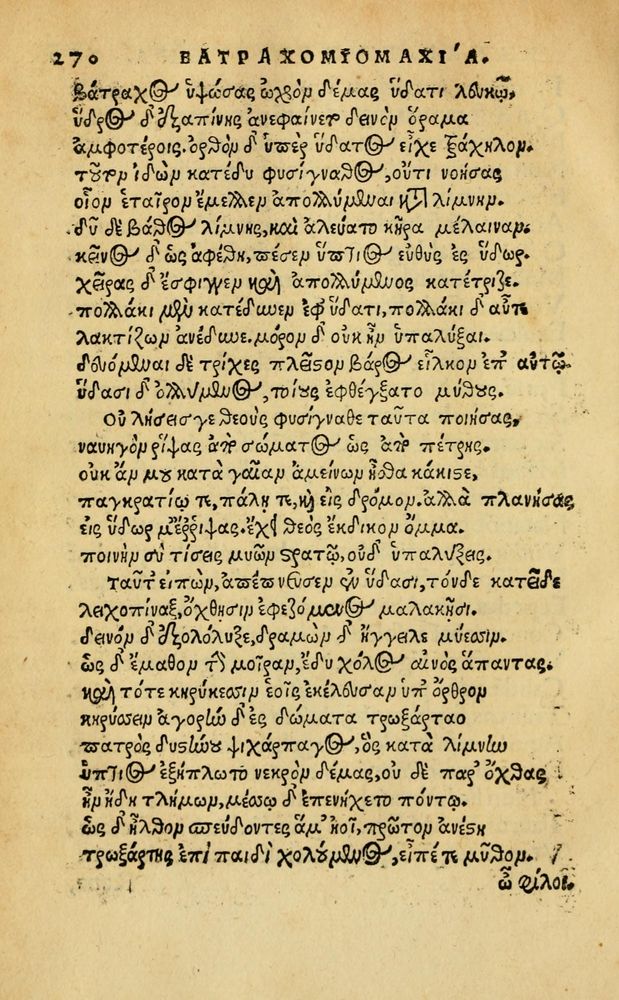 270 ΒΑΤΡΑΧΟΜΥΟΜΑΧΙ´Α.
Βάτραχος ὑψώσας ὠχρὸν δέμας ὕδατι λευκῷ,
ὕδρος δ' ἐξαπίνης ἀνεφαίνετο δεινὸν ὅραμα
ἀμφοτέροις. ὀρθὸν δ' ὑπὲρ ὕδατος εἶχε τράχηλον.
τοῦτον ἰδὼν κατέδυ φυσίγναθος, οὔτι νοήσας
οἷον ἑταῖρον ἔμελλεν ἀπολλύμεναι κατὰ λίμνην.
δῦ δὲ βάθος λίμνης, καὶ ἀλεύατο κῆρα μέλαιναν.
κεῖνος δ' ὡς ἀφέθη, πέσεν ὕπτιος εὐθὺς ἐς ὕδωρ.
χεῖρας δ' ἔσφιγγεν καὶ ἀπολλύμενος κατέτριζε.
πολλάκι μὲν κατέδυνεν ἐφ' ὕδατι, πολλάκι δ' αὖτε
λακτίζων ἀνέδυνε. μόρον δ' οὐκ ἦν ὑπαλύξαι.
δευόμεναι δὲ τρίχες πλεῖστον βάρος εἷλκον ἐπ' αὐτῷ.
ὕδασι δ' ὀλλύμενος, τοίους ἐφθέγξατο μύθους.
Οὐ λήσεις γε θεοὺς φυσίγναθε ταῦτα ποιήσας,
ναυηγὸν ῥίψας ἀπὸ σώματος ὡς ἀπὸ πέτρης.
οὐκ ἄν μου κατὰ γαῖαν ἀμείνων ἦσθα κάκιστε,
παγκρατίῳ τε, πάλῃ τε, καὶ εἰς δρόμον. ἀλλὰ πλανήσας
εἰς ὕδωρ μ' ἔρριψας. ἔχει θεὸς ἔκδικον ὄμμα.
ποινὴν σὺ τίσεις μυῶν στρατῷ, οὐδ' ὑπαλύξεις.
Ταῦτ' εἰπὼν, ἀπέπνευσεν ἐν ὕδασι, τόνδε κατεῖδε
λειχοπίναξ, ὄχθῃσιν ἐφεζόμενος μαλακῇσι.
δεινὸν δ' ἐξολόλυξε, δραμὼν δ' ἤγγειλε μύεσσιν.
ὡς δ' ἔμαθον τὴν μοῖραν, ἔδυ χόλος αἰνὸς ἅπαντας.
καὶ τότε κηρύκεσσιν ἑοῖς ἐκέλευσαν ὑπ' ὄρθρον
κηρύσσειν ἀγορὴν δ' ἐς δώματα τρωξάρταο
πατρὸς δυστήνου ψιχάρπαγος, ὃς κατὰ λίμνην
ὕπτιος ἐξήπλωτο νεκρὸν δέμας, οὐ δὲ παρ' ὄχθας
ἦν ἤδη τλήμων, μέσσῳ δ' ἐπενήχετο πόντῳ.
ὡς δ' ἦλθον σπεύδοντες ἅμ' ἠοῖ, πρῶτον ἀνέστη
τρωξάρτης ἐπὶ παιδὶ χολούμενος, εἶπέ τε μῦθον.
ὦ φίλοι.